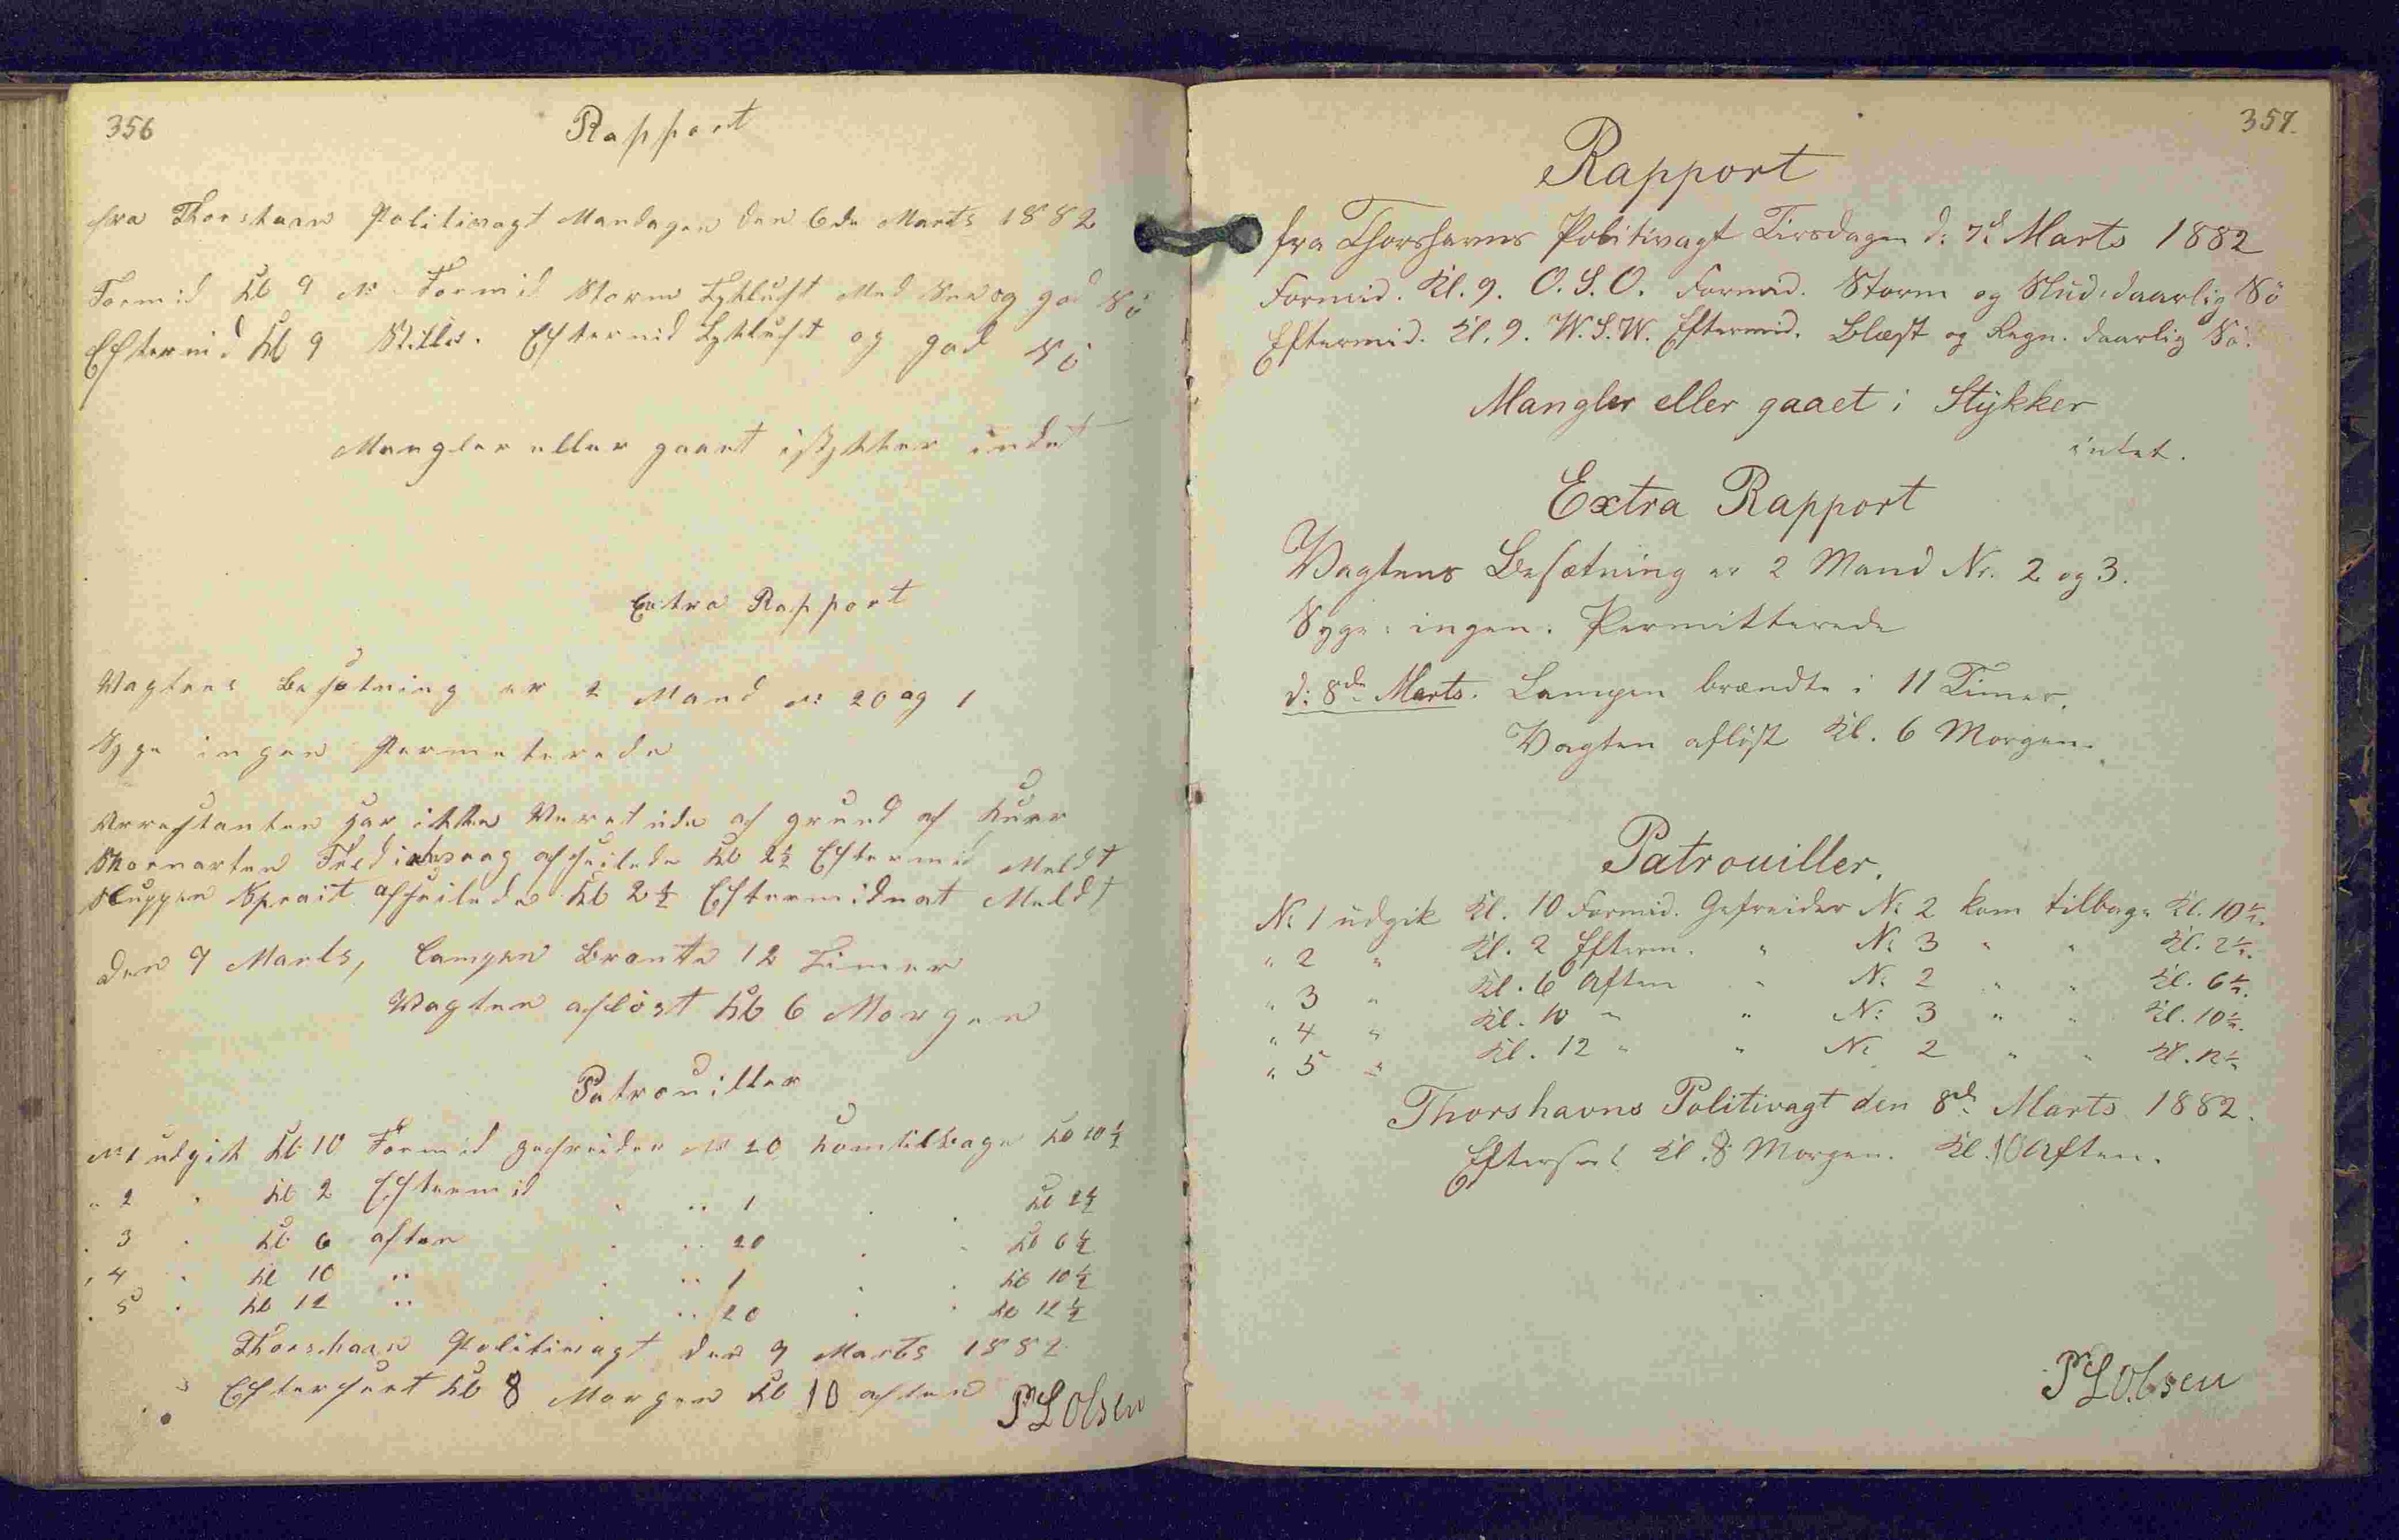 356
Rapport
fra Thorshavn Politivagt Mandagen den 6de Marts 1882
Formid Kl 9 N. Formid Storm Tykluft Med Sne og god Sö
Eftermid Kl 9 Stille. Eftermid Tykluft og god Sö
Mangler eller gaaet istykker indet
Extra Rapport
Vagtens Besetning er 2 Mand No 20 og 1
Syge ingen Permeterede
Arrestanten har ikke Veret ude af grund af
Skonnarten afseilede Kl 2½ Eftermid Meldt
Sluppen Sprait afseilede Kl 2½ Eftermidnat Meldt
Den 7 Marts, Lampen Brente 12 Timer
Vagten aflöst Kl 6 Morgen
Patrouiller
No 1 udgik Kl 10 Formid gefreider No 20 kom tilbage Kl 10½
" 2 " Kl 2 Eftermid " " 1 " " Kl 2½
" 3 " Kl 6 aften " " 20 " " Kl 6½
" 4 " Kl 10 " " " 1 " " Kl 10½
" 5 " Kl 12 " " " 20 " " Kl 12½
Thorshavn Politivagt den 7 Marts 1882
Efterseet Kl 8 Morgen Kl 10 aften PLOlsen
357.
Rapport
fra Thorshavns Politivagt Tirsdagen d: 7de Marts 1882
Formid. Kl. 9. O.S.O. Formid. Storm og Slud. daarlig Sö
Eftermid. Kl. 9. W.S.W. Eftermid. Blæst og Regn. daarlig Sö.
Mangler eller gaaet i Stykker
intet.
Extra Rapport
Vagtens Besætning er 2 Mand Nr. 2 og 3.
Syge: ingen. Permitterede
d: 8de Marts. Lampen brændte i 11 Timer.
Vagten aflöst Kl. 6 Morgen.
Patrouiller.
No 1 udgik Kl. 10 Formid. Gefreider No 2 kom tilbage Kl. 10½.
" 2 " Kl. 2 Efterm. " No 3 " " Kl. 2½.
" 3 " Kl. 6 Aften " No 2 " " Kl. 6½.
" 4 " Kl. 10 " " No 3 " " Kl. 10½.
" 5 " Kl. 12 " " No 2 " " Kl. 12½
Thorshavns Politivagt den 8de Marts 1882.
Efterseet Kl. 8 Morgen. Kl. 10 Aften.
PLOlsen